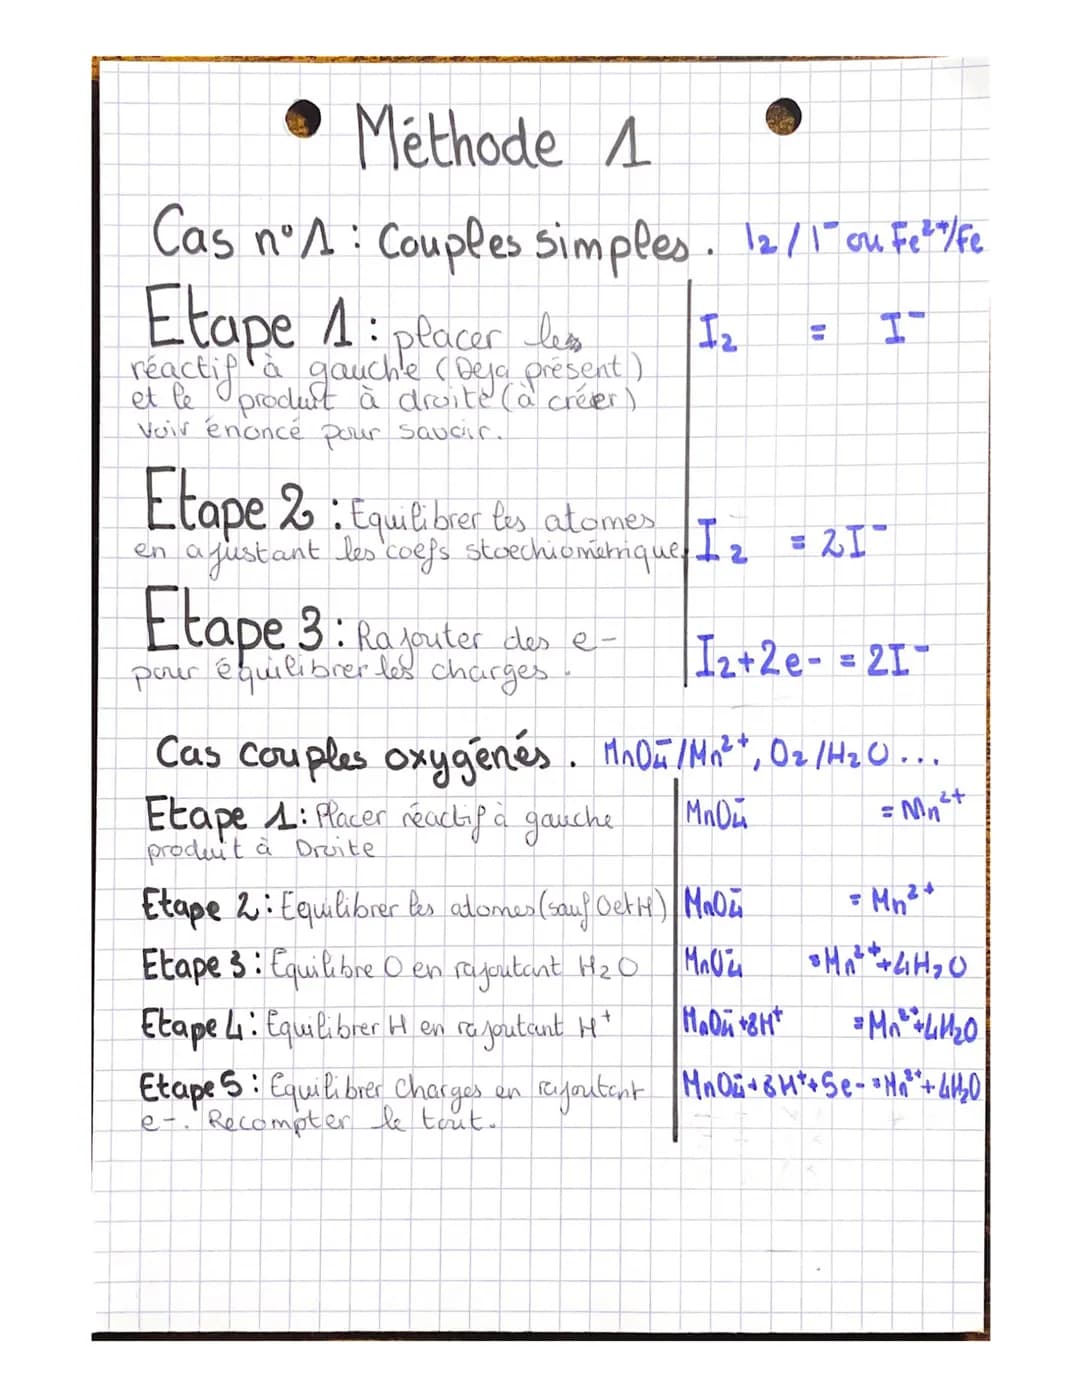 Méthode 1
Cas n°1 : Couples simples. I2/I⁻ ou Fe²⁺/Fe
Etape 1 : placer les
réactif à gauche (Deja présent)
et le produit à droite (à créer)
Voir énoncé pour savoir.
I₂ = I⁻
Etape 2 : Equilibrer les atomes
en ajustant les coefs stoechiométrique
I₂ = 2I⁻
Etape 3 : Rajouter des e-
pour équilibrer les charges.
I₂+2e- = 2I⁻
Cas couples oxygénés. MnO₄⁻/Mn²⁺, O₂/H₂O...
Etape 1 : Placer réactif à gauche
produit à Droite
MnO₄⁻ = Mn²⁺
Etape 2 : Equilibrer les atomes (sauf O et H) MnO₄⁻ = Mn²⁺
Etape 3 : Equilibre O en rajoutant H₂O MnO₄⁻ = Mn²⁺+4H₂O
Etape 4 : Equilibrer H en rajoutant H⁺ MnO₄⁻+8H⁺ = Mn²⁺+4H₂O
Etape 5 : Equilibrer Charges en rajoutant MnO₄⁻+8H⁺+5e- = Mn²⁺+4H₂O
e-. Recompter le tout.